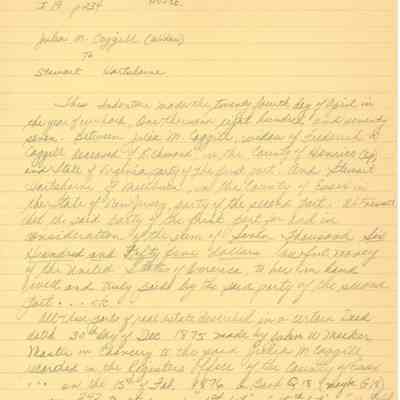 I 19 p234
Julia M. Coggill (widow)
To
Stewart Hartshorne
This Indenture made the twenty fourth day of April in
the year of our Lord, One thousand eight hundred and seventy
seven. Between Julia M. Coggill, widow of Frederick
Coggill deceased of Richmond, in the County of Henrico
and State of Virginia party of the first part. And Stewart
Hartshorne of Millburn, in the County of Essex in
the State of New Jersey, party of the second part. Witnesseth
that the said party of the first part for and in
consideration of the sum of Seven Thousand Six
Hundred and Fifty five dollars lawful money
of the United States of America, to her in hand
well and truly paid by the said party of the second
part . . . . etc
All those parts of real estate described in a certain Deed
dated 30th day of Dec. 1875 made by John W Meeker
Master in Chancery to the said Julia M. Coggill
recorded in the Registers Office of the County of Essex
... on the 15th of Feb. 1876 in Book Q 18 (maybe G18)